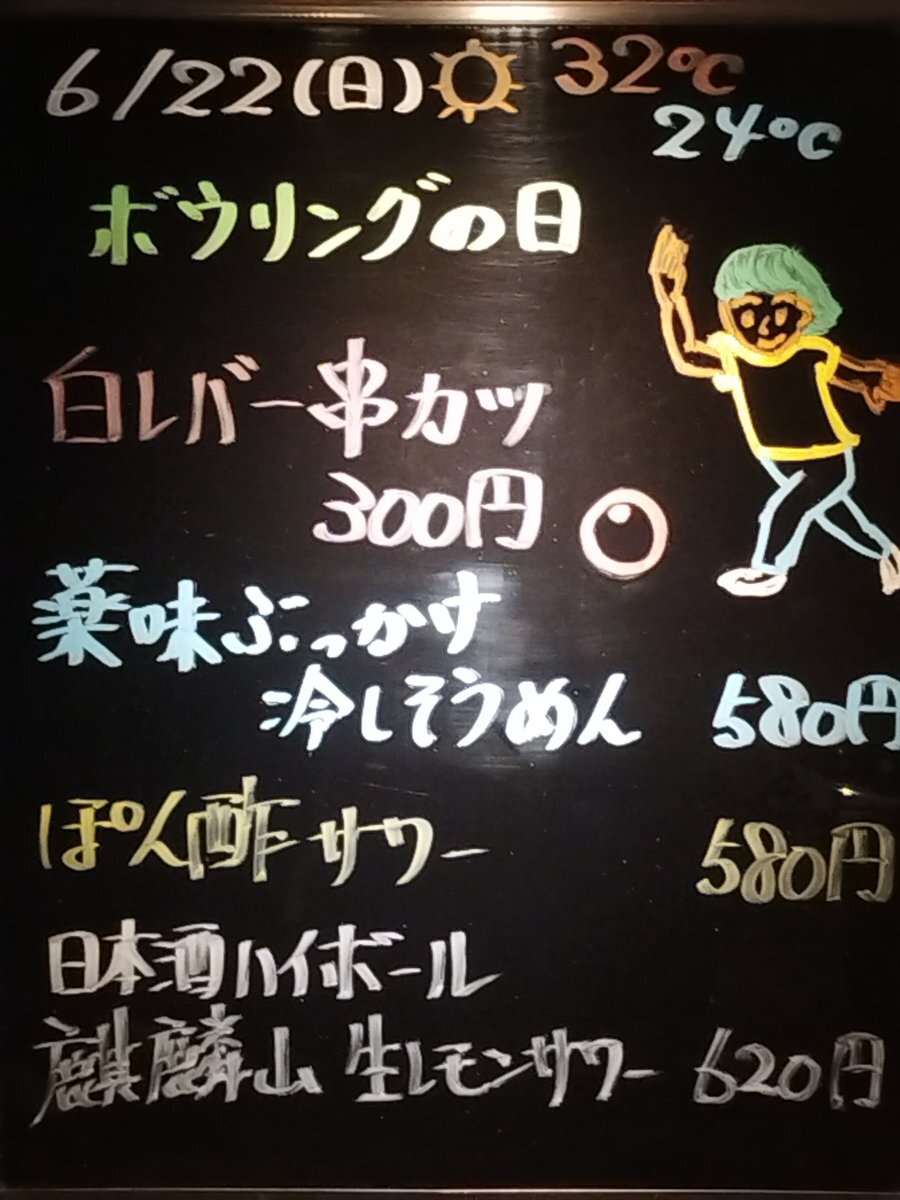 6/22(日) 32℃
24℃
ボウリングの日
白レバー串カツ
300円
薬味ぶっかけ
冷しそうめん 580円
ぽん酢サワー 580円
日本酒ハイボール
麒麟山 生レモンサワー 620円